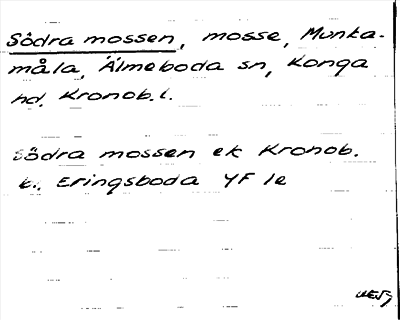 Södra mossen, mosse, Munka-
måla, Älmeboda sn, Konga
hd, Kronob. l.
Södra mossen ek Kronob.
l., Eringsboda YF 1e